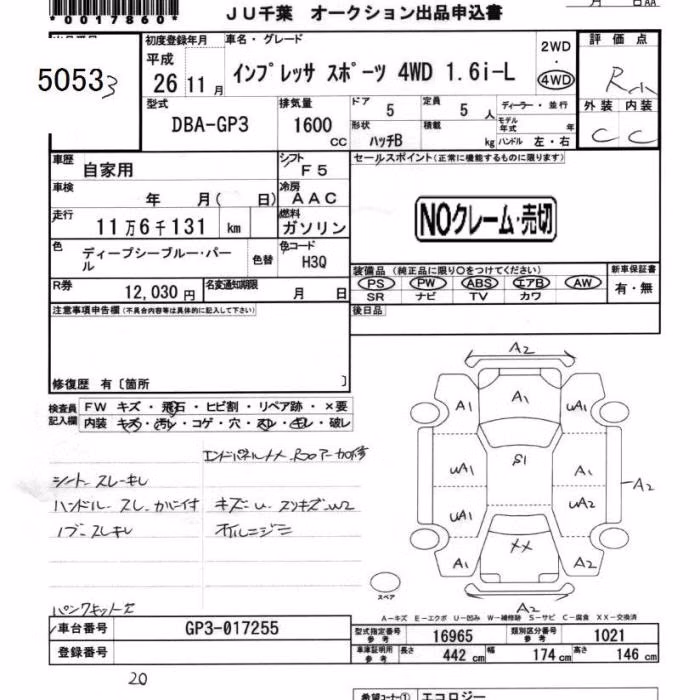 *0017860*
JU千葉 オークション出品申込書
月 日AA
初度登録年月
車名・グレード
評価点
5053 3
平成
26 11 月
インプレッサ スポーツ 4WD 1.6i-L
2WD
・
4WD
R
外装 内装
C C
型式
DBA-GP3
排気量
1600
CC
ドア
5
定員
5 人
ディーラー・並行
形状
ハッチB
積載
kg
モデル年式
年
ハンドル 左・右
車歴
自家用
シフト
F5
セールスポイント(正常に機能するものに限ります)
車検
年 月( 日)
冷房
AAC
NOクレーム・売切
走行
11万6千131 km
燃料
ガソリン
色
ディープシーブルー・パール
色替
色コード
H3Q
装備品 (純正品に限り○をつけてください)
新車保証書
PS PW ABS エアB AW
SR ナビ TV カワ
有・無
R券
12,030 円
名変通知期限
月 日
後日品
注意事項申告欄(不具合内容等は具体的に記入して下さい)
修復歴 有〔箇所 〕
検査員記入欄
FW キズ・飛石・ヒビ割・リペア跡・×要
内装 キズ・汚レ・コゲ・穴・スレ・キレ・破レ
エンドパネルXX Rフロアー加修
シート スレ キレ
ハンドル スレ
キズ・U スリキズ・W2
ノブ スレキレ
オイルニジミ
パンクキットX
A2
A1
A1
UA1
UA1
S1
A1
A2
UA1
UA2
XX
A1
A2
A2
スペア
A-キズ E-エクボ U-凹み W-補修跡 S-サビ C-腐食 XX-交換済
車台番号
GP3-017255
型式指定番号
参考
16965
類別区分番号
参考
1021
登録番号
車庫証明用
参考
長さ
442 cm
幅
174 cm
高さ
146 cm
20
希望コーナー①
エコロジー